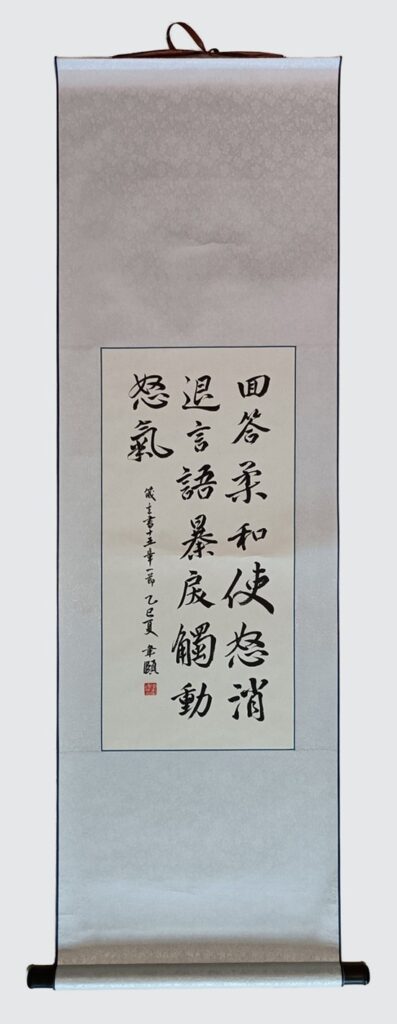 回答柔和使怒消
退言語暴戾觸動
怒氣
箴言書十五章一節 乙巳夏 韋頤